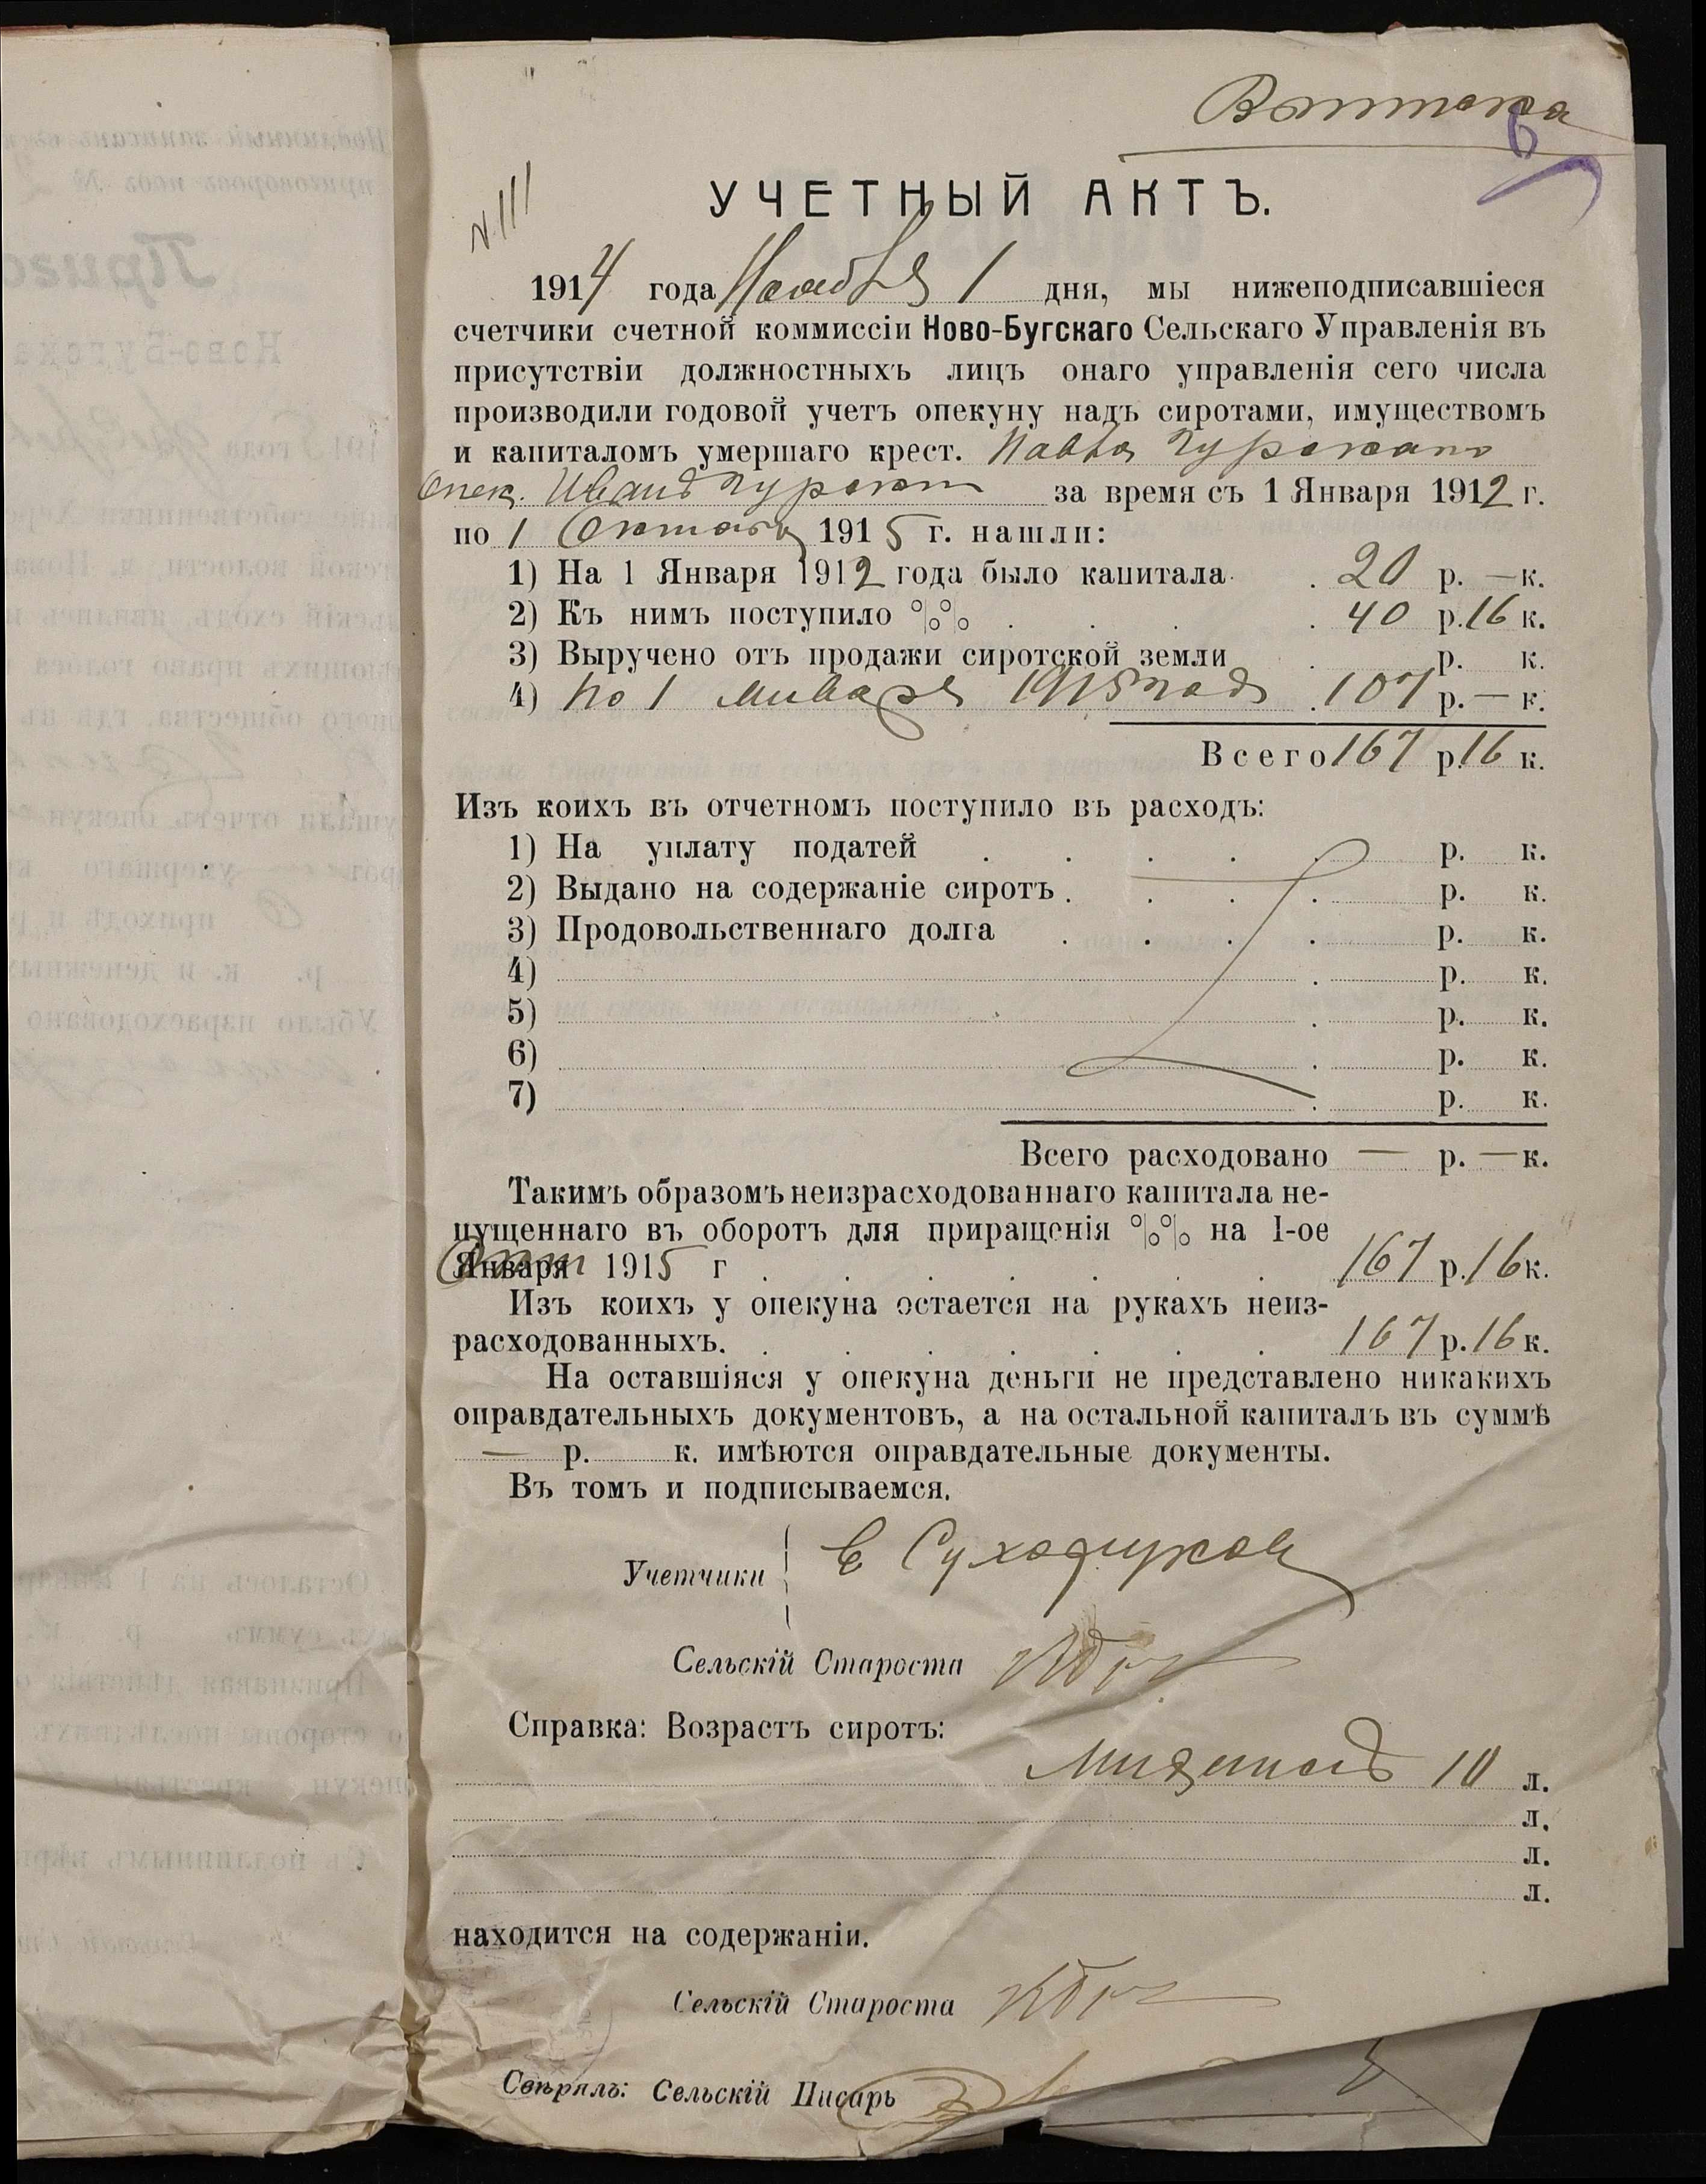 6
№ 111
УЧЕТНЫЙ АКТЪ.
1914 года Ноября 1 дня, мы нижеподписавшіеся
счетчики счетной коммиссіи Ново-Бугскаго Сельскаго Управленія въ
присутствіи должностныхъ лицъ онаго управленія сего числа
производили годовой учетъ опекуну надъ сиротами, имуществомъ
и капиталомъ умершаго крест. Павла
Опек. Иванъ за время съ 1 Января 1912 г.
по 1 Октября 1915 г. нашли:
1) На 1 Января 1912 года было капитала . 20 р. — к.
2) Къ нимъ поступило %% . . . . 40 р. 16 к.
3) Выручено отъ продажи сиротской земли . р. к.
4) по 1 Января 1915 года . 107 р. — к.
Всего 167 р. 16 к.
Изъ коихъ въ отчетномъ поступило въ расходъ:
1) На уплату податей . . . . . р. к.
2) Выдано на содержаніе сиротъ . . . . р. к.
3) Продовольственнаго долга . . . . р. к.
4) . р. к.
5) . р. к.
6) . р. к.
7) . р. к.
Всего расходовано — р. — к.
Такимъ образомъ неизрасходованнаго капитала не-
пущеннаго въ оборотъ для приращенія %% на 1-ое
Января Окт 1915 г . . . . . . . 167 р. 16 к.
Изъ коихъ у опекуна остается на рукахъ неиз-
расходованныхъ. . . . . . . . 167 р. 16 к.
На оставшіяся у опекуна деньги не представлено никакихъ
оправдательныхъ документовъ, а на остальной капиталъ въ суммѣ
— р. к. имѣются оправдательные документы.
Въ томъ и подписываемся.
Учетчики
Сельскій Староста
Справка: Возрастъ сиротъ:
10 л.
л.
л.
л.
находится на содержаніи.
Сельскій Староста
Свѣрялъ: Сельскій Писарь